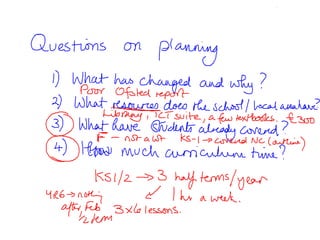 Questions on planning
1) What has changed and why?
Poor Ofsted report
2) What resources does the school / local area have?
Library, ICT suite, a few textbooks. £300
3) What have students already covered?
F - not a lot KS-1 → covered NC
4) How much curriculum time?
KS1/2 → 3 half terms / year
4R6 → nothing after Feb 1/2 term
1 hr a week.
3 x 6 lessons.